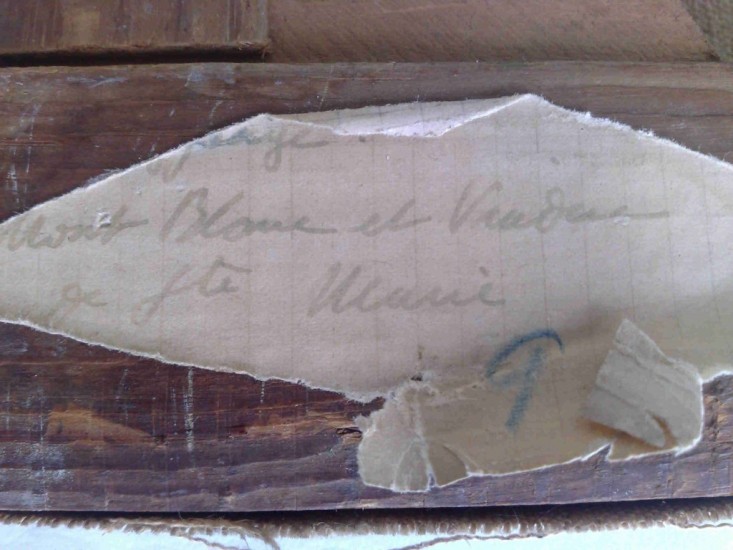 Mont Blanc et Viaduc
de Ste Marie